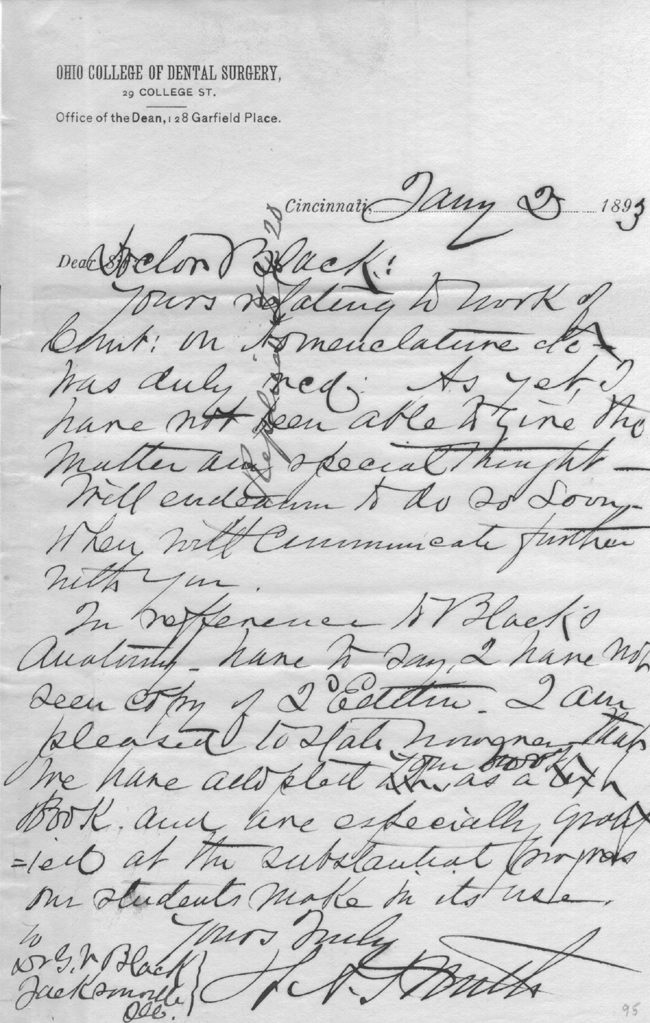 OHIO COLLEGE OF DENTAL SURGERY,
29 COLLEGE ST.
Office of the Dean, 128 Garfield Place.
Cincinnati, Jany 2 1893
Dear Doctor Black:
Yours relating to work of
Comt: on Nomenclature &c
was duly recd: As yet, I
have not been able to give the
matter any special thought —
Will endeavor to do so soon —
When will Communicate further
with you.
In refference to Black's
Anatomy — have to say, I have not
seen copy of 2d Edition. I am
pleased to state however that
your work
we have adopted as a text
Book. and are especially grati
=ied at the substantial progress
our students make in its use.
Yours Truly
H. A. Smith
To
Dr G. V. Black
Jacksonville
Ill.
95